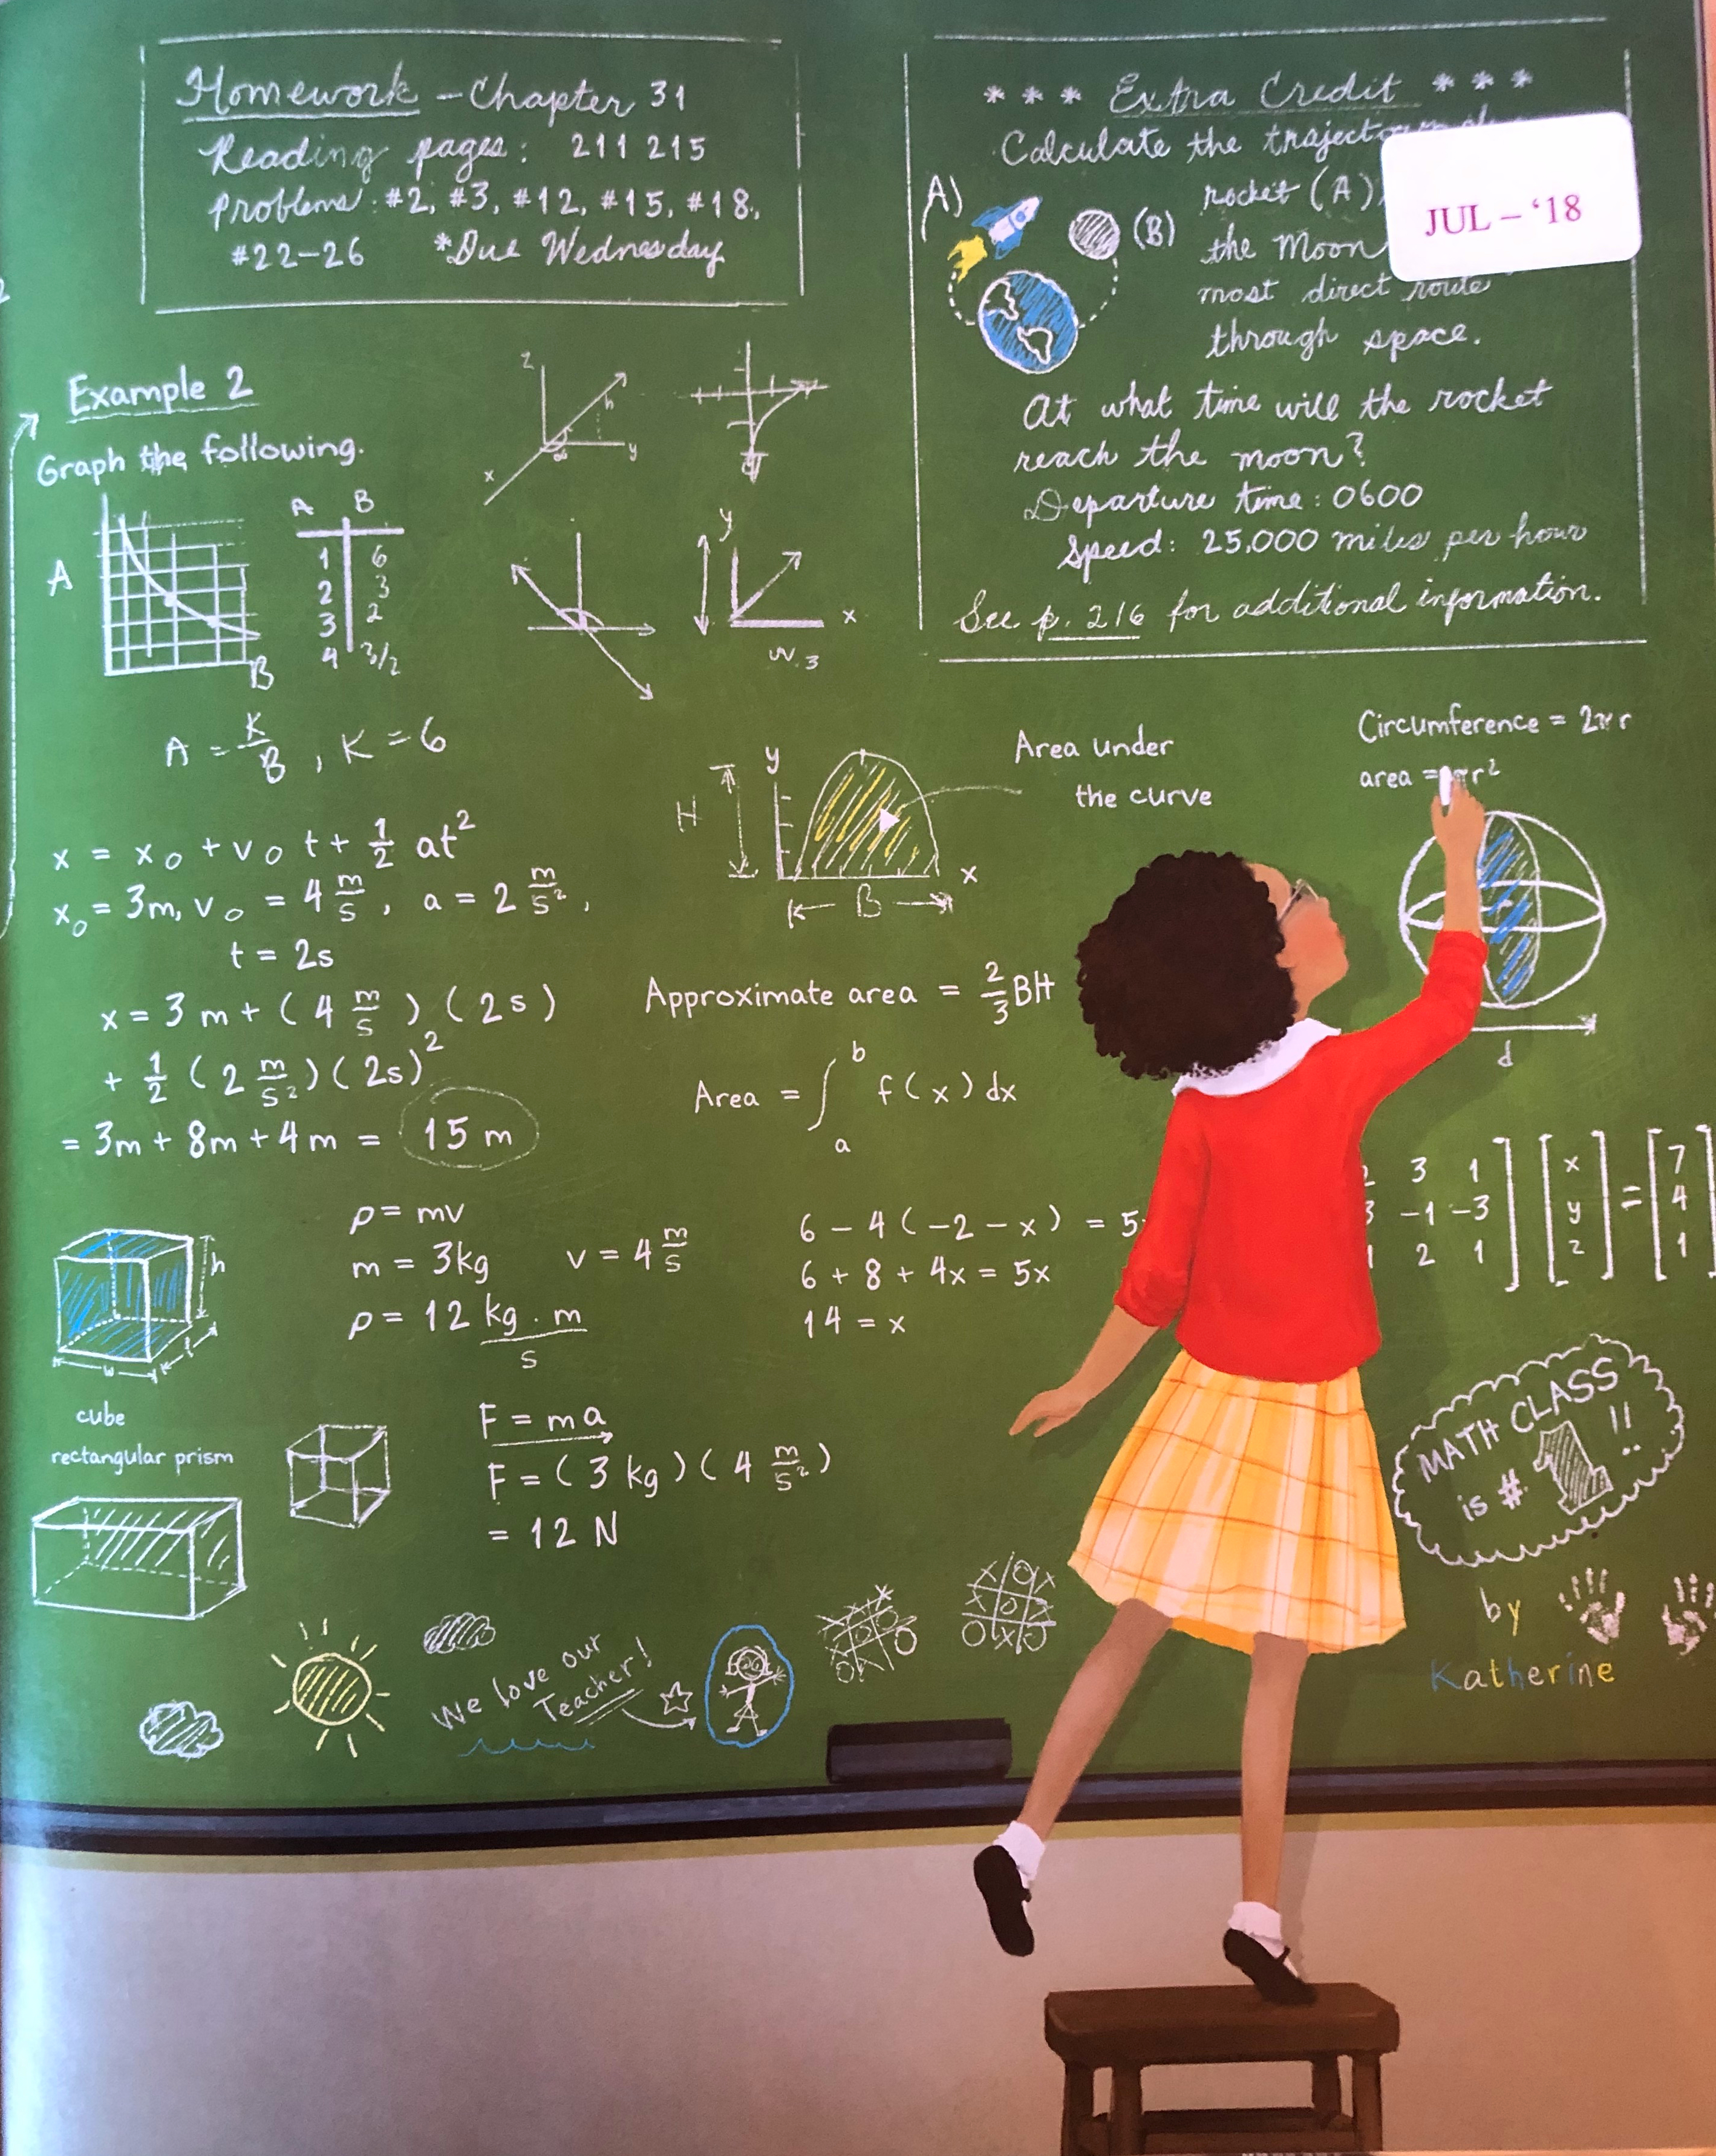 Homework - Chapter 31
Reading pages: 211 215
problems: #2, #3, #12, #15, #18,
#22-26 *Due Wednesday
*** Extra Credit ***
Calculate the
rocket (A)
the Moon
most direct route
through space.
A)
(B)
At what time will the rocket
reach the moon?
Departure time: 0600
Speed: 25,000 miles per hour
See p. 216 for additional information.
JUL - '18
Example 2
Graph the following.
A
B
A B
1 6
2 3
3 2
4 3/2
z
h
x
y
y
x
A = K/B, K = 6
x = x₀ + v₀ t + 1/2 at²
x₀ = 3m, v₀ = 4 m/s, a = 2 m/s²,
t = 2s
x = 3 m + (4 m/s)(2s)
+ 1/2 (2 m/s²)(2s)²
= 3m + 8m + 4m = 15 m
H
y
x
B
Area under
the curve
Approximate area = 2/3 BH
Area = ∫ₐᵇ f(x) dx
Circumference = 2πr
area = πr²
d
3 1
-1 -3
2 1
x
y
z
=
7
4
1
p = mv
m = 3kg v = 4 m/s
p = 12 kg · m/s
6 - 4(-2 - x) = 5
6 + 8 + 4x = 5x
14 = x
h
w
l
cube
rectangular prism
F = ma
F = (3 kg)(4 m/s²)
= 12 N
MATH CLASS
is # 1 !!
by
Katherine
We love our
Teacher!